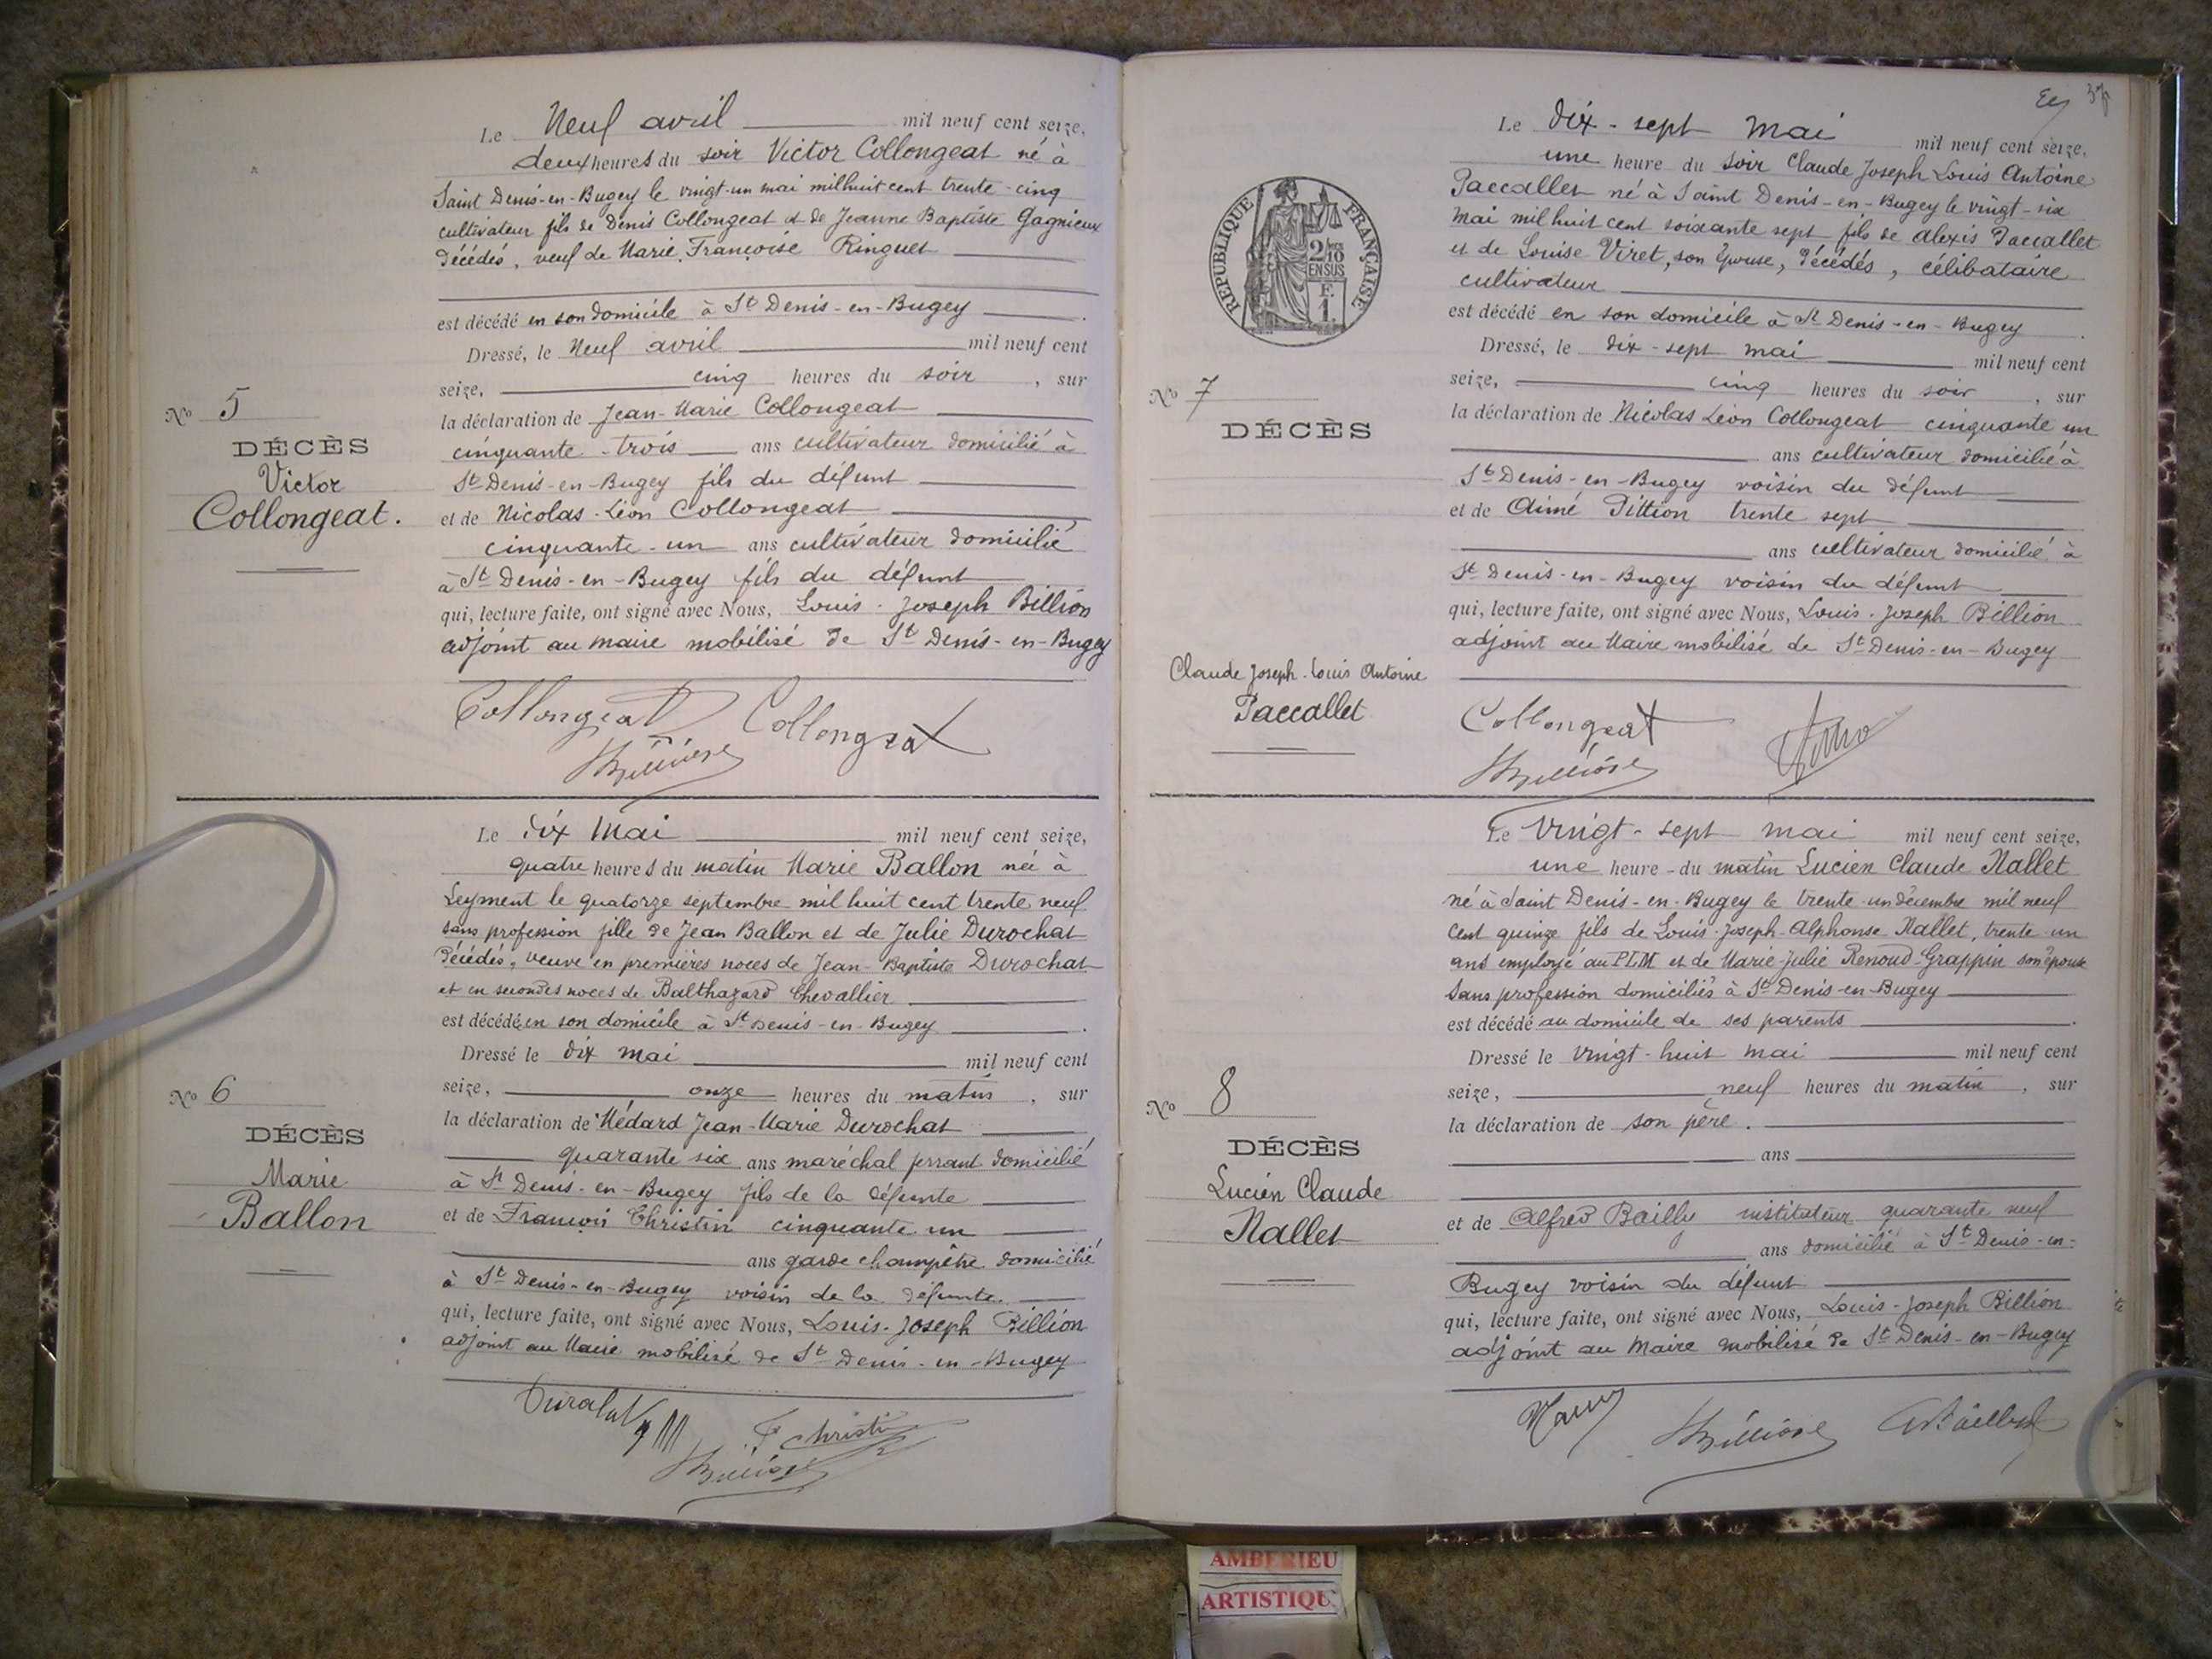 Le Neuf avril mil neuf cent seize,
deux heures du soir Victor Collongeat né à
Saint Denis-en-Bugey le vingt-un mai mil huit cent trente-cinq
cultivateur fils de Denis Collongeat et de Jeanne Baptiste Gagnieux
décédés, veuf de Marie Françoise Ringuet
est décédé en son domicile à St Denis-en-Bugey.
Dressé, le Neuf avril mil neuf cent
seize, cinq heures du soir, sur
la déclaration de Jean-Marie Collongeat
cinquante-trois ans cultivateur domicilié à
St Denis-en-Bugey fils du défunt
et de Nicolas-Léon Collongeat
cinquante-un ans cultivateur domicilié
à St Denis-en-Bugey fils du défunt
qui, lecture faite, ont signé avec Nous, Louis-Joseph Billion
adjoint au maire mobilisé de St Denis-en-Bugey
Collongeat Collongeat
LBillion
No 5
DÉCÈS
Victor
Collongeat.
Le dix mai mil neuf cent seize,
quatre heures du matin Marie Ballon née à
Leyment le quatorze septembre mil huit cent trente neuf
sans profession fille de Jean Ballon et de Julie Durochat
décédés, veuve en premières noces de Jean-Baptiste Durochat
et en secondes noces de Balthazard Chevallier
est décédée en son domicile à St Denis-en-Bugey.
Dressé le dix mai mil neuf cent
seize, onze heures du matin, sur
la déclaration de Médard Jean-Marie Durochat
quarante six ans maréchal ferrant domicilié
à St Denis-en-Bugey fils de la défunte
et de François Christin cinquante un
ans garde champêtre domicilié
à St Denis-en-Bugey voisin de la défunte.
qui, lecture faite, ont signé avec Nous, Louis-Joseph Billion
adjoint au Maire mobilisé de St Denis-en-Bugey
F Christin
LBillion
No 6
DÉCÈS
Marie
Ballon
Le dix-sept mai mil neuf cent seize,
une heure du soir Claude Joseph Louis Antoine
Paccallet né à Saint Denis-en-Bugey le vingt-six
mai mil huit cent soixante sept fils de Alexis Paccallet
et de Louise Viret, son épouse, décédés, célibataire
cultivateur
est décédé en son domicile à St Denis-en-Bugey.
Dressé, le dix-sept mai mil neuf cent
seize, cinq heures du soir, sur
la déclaration de Nicolas Léon Collongeat cinquante un
ans cultivateur domicilié à
St Denis-en-Bugey voisin du défunt
et de Aimé Pittion trente sept
ans cultivateur domicilié à
St Denis-en-Bugey voisin du défunt
qui, lecture faite, ont signé avec Nous, Louis-Joseph Billion
adjoint au Maire mobilisé de St Denis-en-Bugey
Collongeat
LBillion
REPUBLIQUE FRANÇAISE
2/10
EN SUS
F.
1.
No 7
DÉCÈS
Claude Joseph-Louis Antoine
Paccallet
Le vingt-sept mai mil neuf cent seize,
une heure du matin Lucien Claude Nallet
né à Saint Denis-en-Bugey le trente-un décembre mil neuf
cent quinze fils de Louis-Joseph-Alphonse Nallet, trente-un
ans employé au PLM et de Marie-Julie Renoud-Grappin son épouse
sans profession domiciliés à St Denis-en-Bugey
est décédé au domicile de ses parents.
Dressé le vingt-huit mai mil neuf cent
seize, neuf heures du matin, sur
la déclaration de son père.
ans
et de Alfred Bailly instituteur quarante neuf
ans domicilié à St Denis-en-
Bugey voisin du défunt
qui, lecture faite, ont signé avec Nous, Louis-Joseph Billion
adjoint au Maire mobilisé de St Denis-en-Bugey
LBillion ABailly
No 8
DÉCÈS
Lucien Claude
Nallet
AMBERIEU
ARTISTIQU